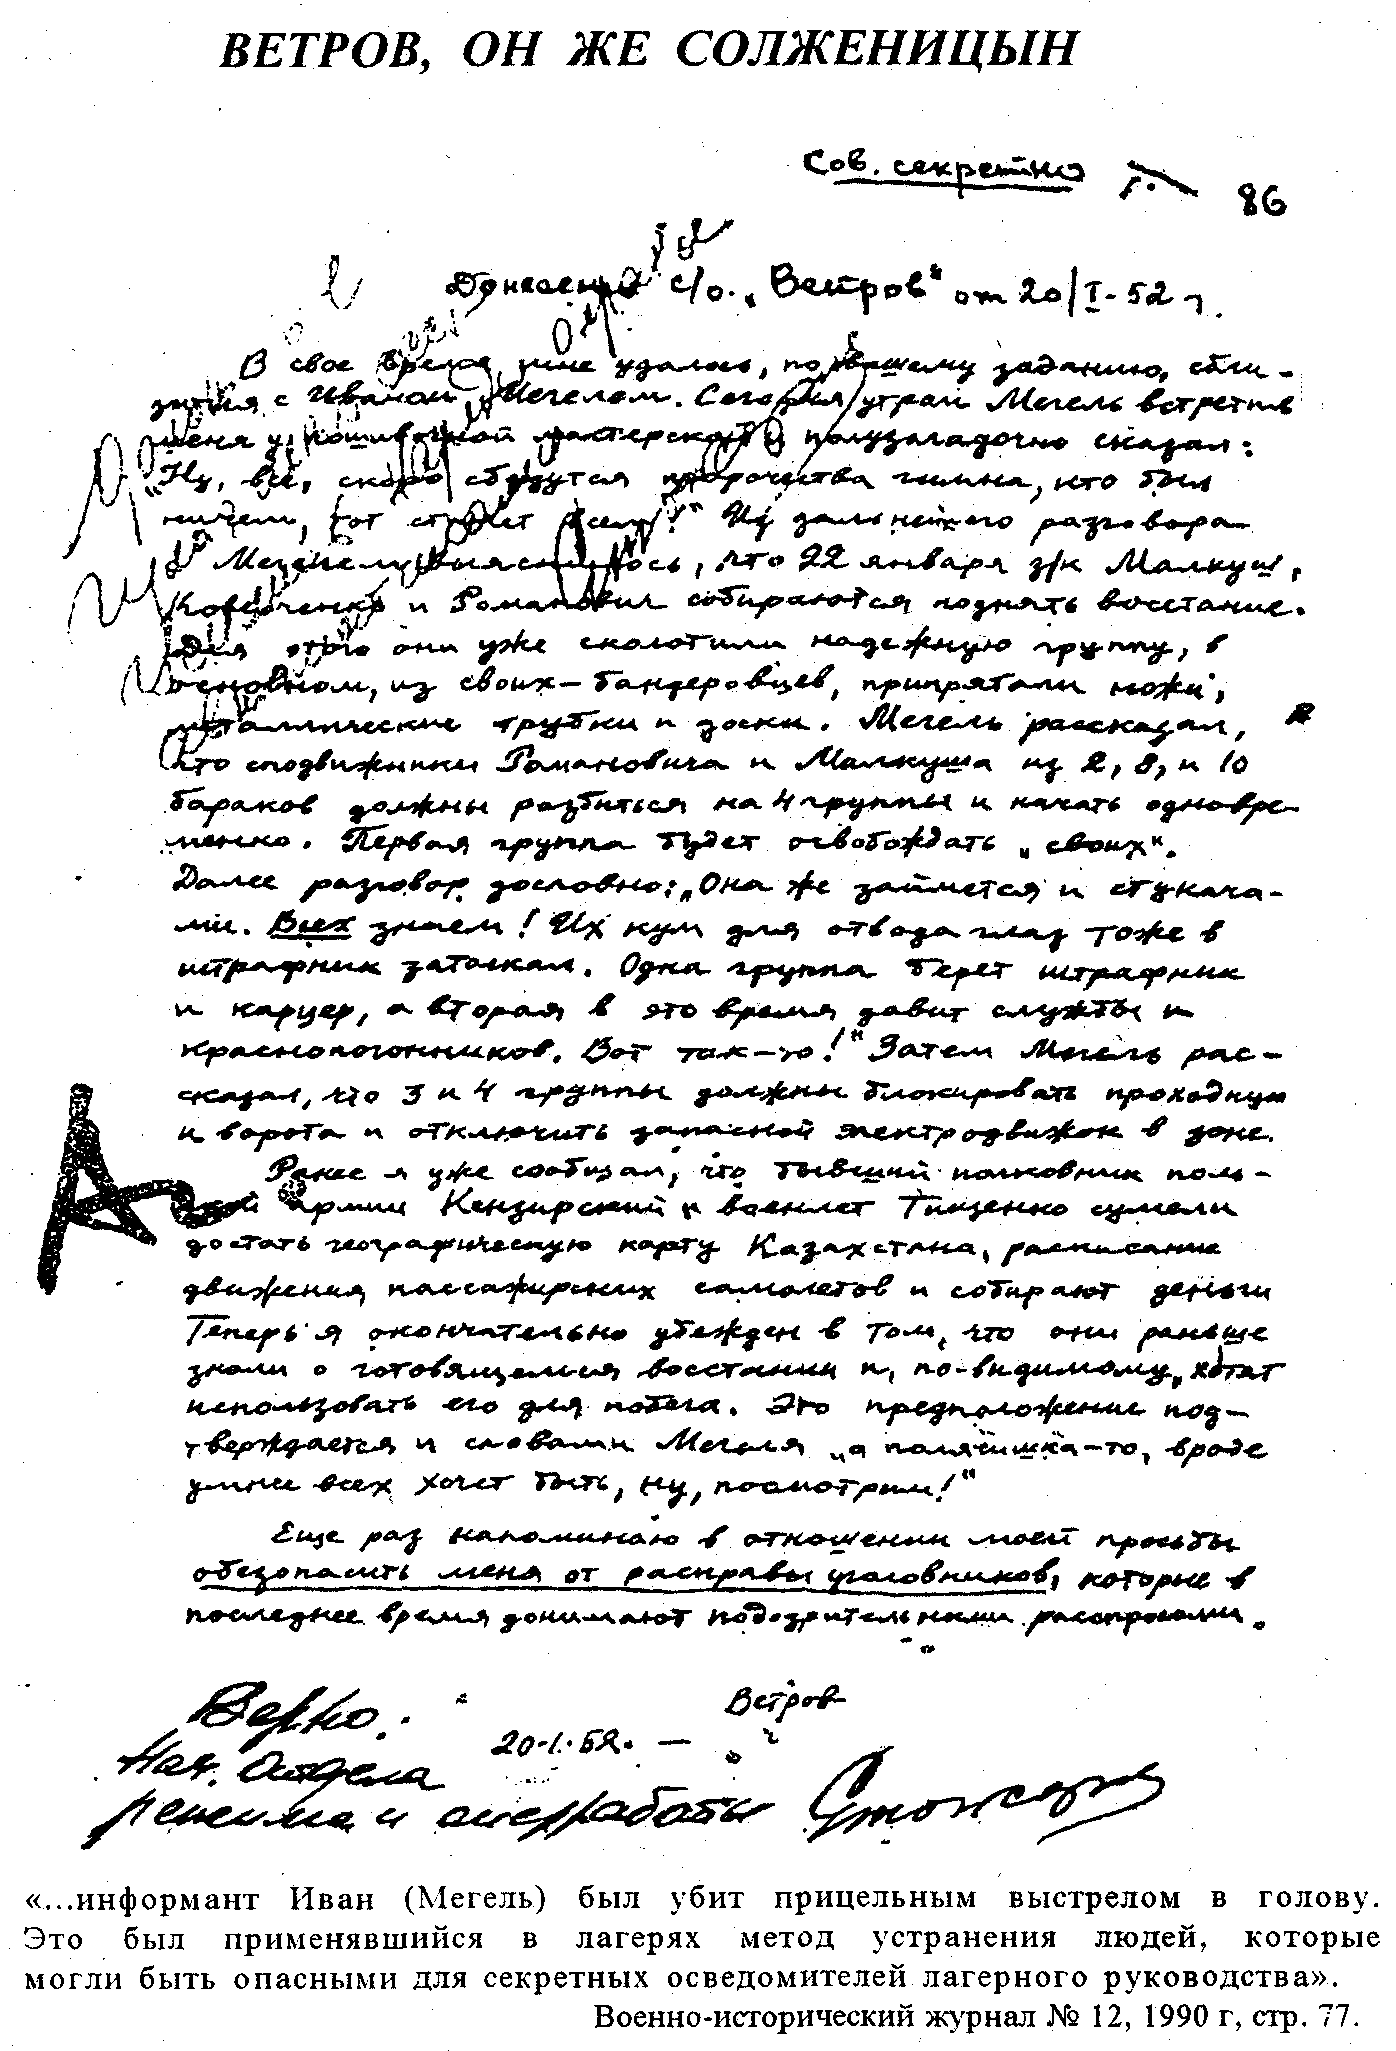 ВЕТРОВ, ОН ЖЕ СОЛЖЕНИЦЫН
Сов. секретно
86
Донесение с/о. „Ветров“ от 20/I-52 г.
В свое время мне удалось, по вашему заданию, сбли-
зиться с Иваном Мегелем. Сегодня утром Мегель встретил
меня у пошивочной мастерской и полузагадочно сказал:
„Ну, всё, скоро сбудутся пророчества гимна, кто был
ничем, тот станет всем!“ Из дальнейшего разговора
с Мегелем выяснилось, что 22 января з/к Малкуш,
Коверченко и Романович собираются поднять восстание.
Для этого они уже сколотили надежную группу, в
основном, из своих – бандеровцев, припрятали ножи,
металлические трубки и доски. Мегель рассказал,
что сподвижники Романовича и Малкуша из 2, 8, и 10
бараков должны разбиться на 4 группы и начать одновре-
менно. Первая группа будет освобождать „своих“.
Далее разговор дословно: „Она же займется и стукача-
ми. Всех знаем! Их кум для отвода глаз тоже в
штрафник затолкал. Одна группа берет штрафник
и карцер, а вторая в это время давит службы и
краснопогонников. Вот так-то!“ Затем Мегель рас-
сказал, что 3 и 4 группы должны блокировать проходную
и ворота и отключить запасной электродвижок в зоне.
Ранее я уже сообщал, что бывший полковник поль-
ской армии Кензирский и военлет Тищенко сумели
достать географическую карту Казахстана, расписание
движения пассажирских самолетов и собирают деньги
Теперь я окончательно убежден в том, что они раньше
знали о готовящемся восстании и, по-видимому, хотят
использовать его для побега. Это предположение под-
тверждается и словами Мегеля „а полячишка-то, вроде
умнее всех хочет быть, ну, посмотрим!“
Еще раз напоминаю в отношении моей просьбы
обезопасить меня от расправы уголовников, которые в
последнее время донимают подозрительными расспросами.
Ветров
20.I.52.
Верно:
Нач. Отдела
режима и оперработы
«...информант Иван (Мегель) был убит прицельным выстрелом в голову.
Это был применявшийся в лагерях метод устранения людей, которые
могли быть опасными для секретных осведомителей лагерного руководства».
Военно-исторический журнал № 12, 1990 г, стр. 77.